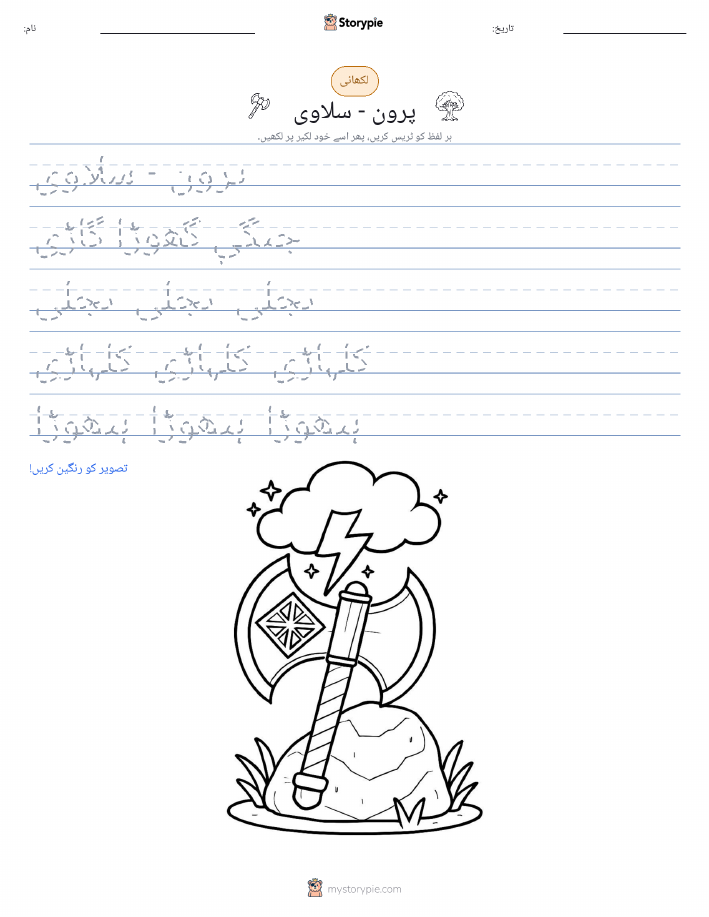 نام:
Storypie
تاریخ:
لکھائی
پرون - سلاوی
ہر لفظ کو ٹریس کریں، پھر اسے خود لکیر پر لکھیں۔
پرون - سلاوی
جنگی گھوڑا گاڑی
بجلی بجلی بجلی
کلہاڑی کلہاڑی کلہاڑی
ہتھوڑا ہتھوڑا ہتھوڑا
تصویر کو رنگین کریں!
mystorypie.com